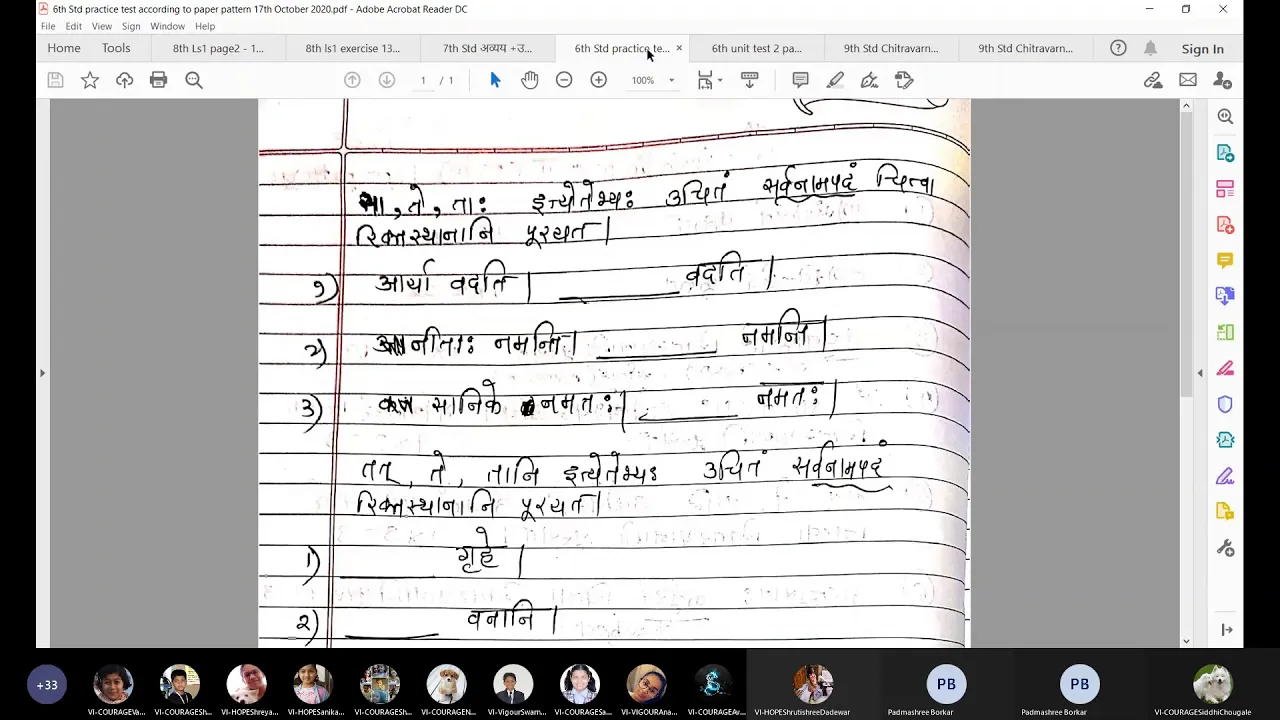 6th Std practice test according to paper pattern 17th October 2020.pdf - Adobe Acrobat Reader DC
File Edit View Sign Window Help
Home Tools 8th Ls1 page2 - 1... 8th ls1 exercise 13... 7th Std अव्यय +उ... 6th Std practice te... × 6th unit test 2 pa... 9th Std Chitravarn... 9th Std Chitravarn... Sign In
1 / 1 100%
सा, ते, ताः इत्येतेभ्यः उचितं सर्वनामपदं चित्वा
रिक्तस्थानानि पूरयत।
१) आर्या वदति। ______ वदति।
२) नीताः नमन्ति। ______ नमन्ति।
३) सानिके नमतः। ______ नमतः।
तत्, ते, तानि इत्येतेभ्यः उचितं सर्वनामपदं
रिक्तस्थानानि पूरयत।
१) ______ गृहे।
२) ______ वनानि।
+33 PB PB
VI-COURAGEVa... VI-COURAGESh... VI-HOPEShreya... VI-HOPESanika... VI-COURAGESh... VI-COURAGEN... VI-VigourSwam... VI-COURAGESa... VI-VIGOURAna... VI-COURAGEAv... VI-HOPEShrutishreeDadewar Padmashree Borkar Padmashree Borkar VI-COURAGESiddhiChougale